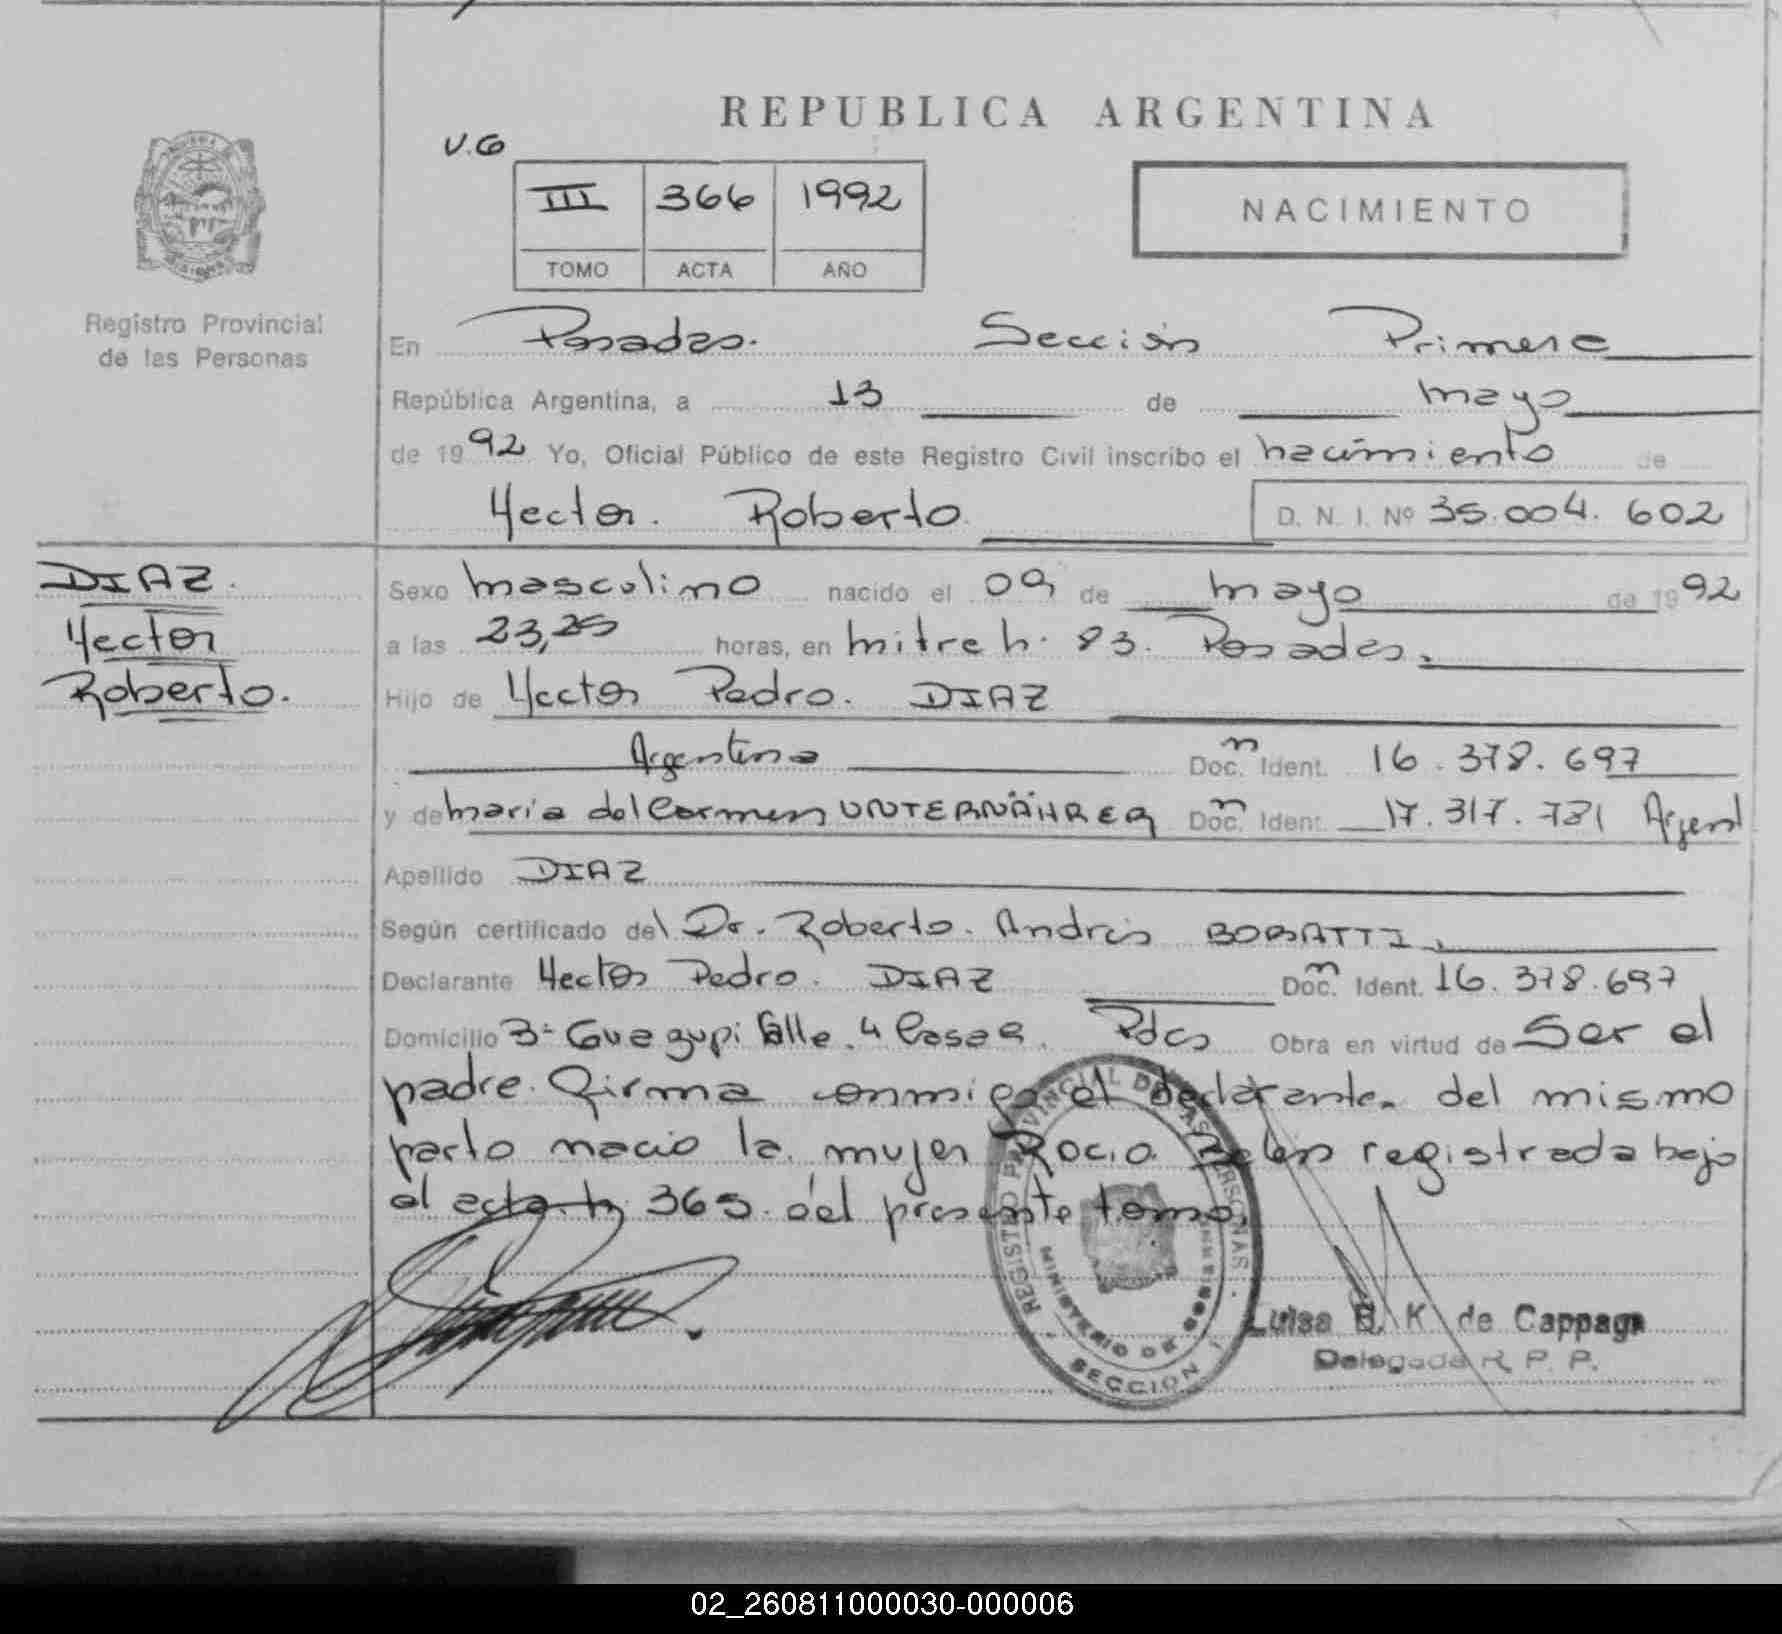 REPUBLICA ARGENTINA
V.G
III 366 1992
TOMO ACTA AÑO
NACIMIENTO
Registro Provincial
de las Personas
En Posadas. Sección Primera
República Argentina, a 13 de mayo
de 1992 Yo, Oficial Público de este Registro Civil inscribo el nacimiento de
Hector. Roberto D. N. I. Nº 35.004.602
DIAZ.
Hector
Roberto.
Sexo masculino nacido el 09 de mayo de 1992
a las 23,25 horas, en mitre n. 83. Posadas.
Hijo de Hector Pedro. DIAZ
Argentina Doc. Ident. 16.378.697
y de maria del Carmen UNTERNÄHRER Doc. Ident. 17.317.781 Argent
Apellido DIAZ
Según certificado del Dr. Roberto. Andrés BOBATTI.
Declarante Hector Pedro. DIAZ Doc. Ident. 16.378.697
Domicilio 3- Calle. 4 Casa Pdas Obra en virtud de Ser el
padre. Firma conmigo el declarante. del mismo
parto nacio la mujer Rocio Belen registrada bajo
el acta n. 365. del presente tomo.
REGISTRO PROVINCIAL DE LAS PERSONAS
MINISTERIO DE
SECCION 1
Luisa K. de Cappaga
Delegada R. P. P.
02_260811000030-000006